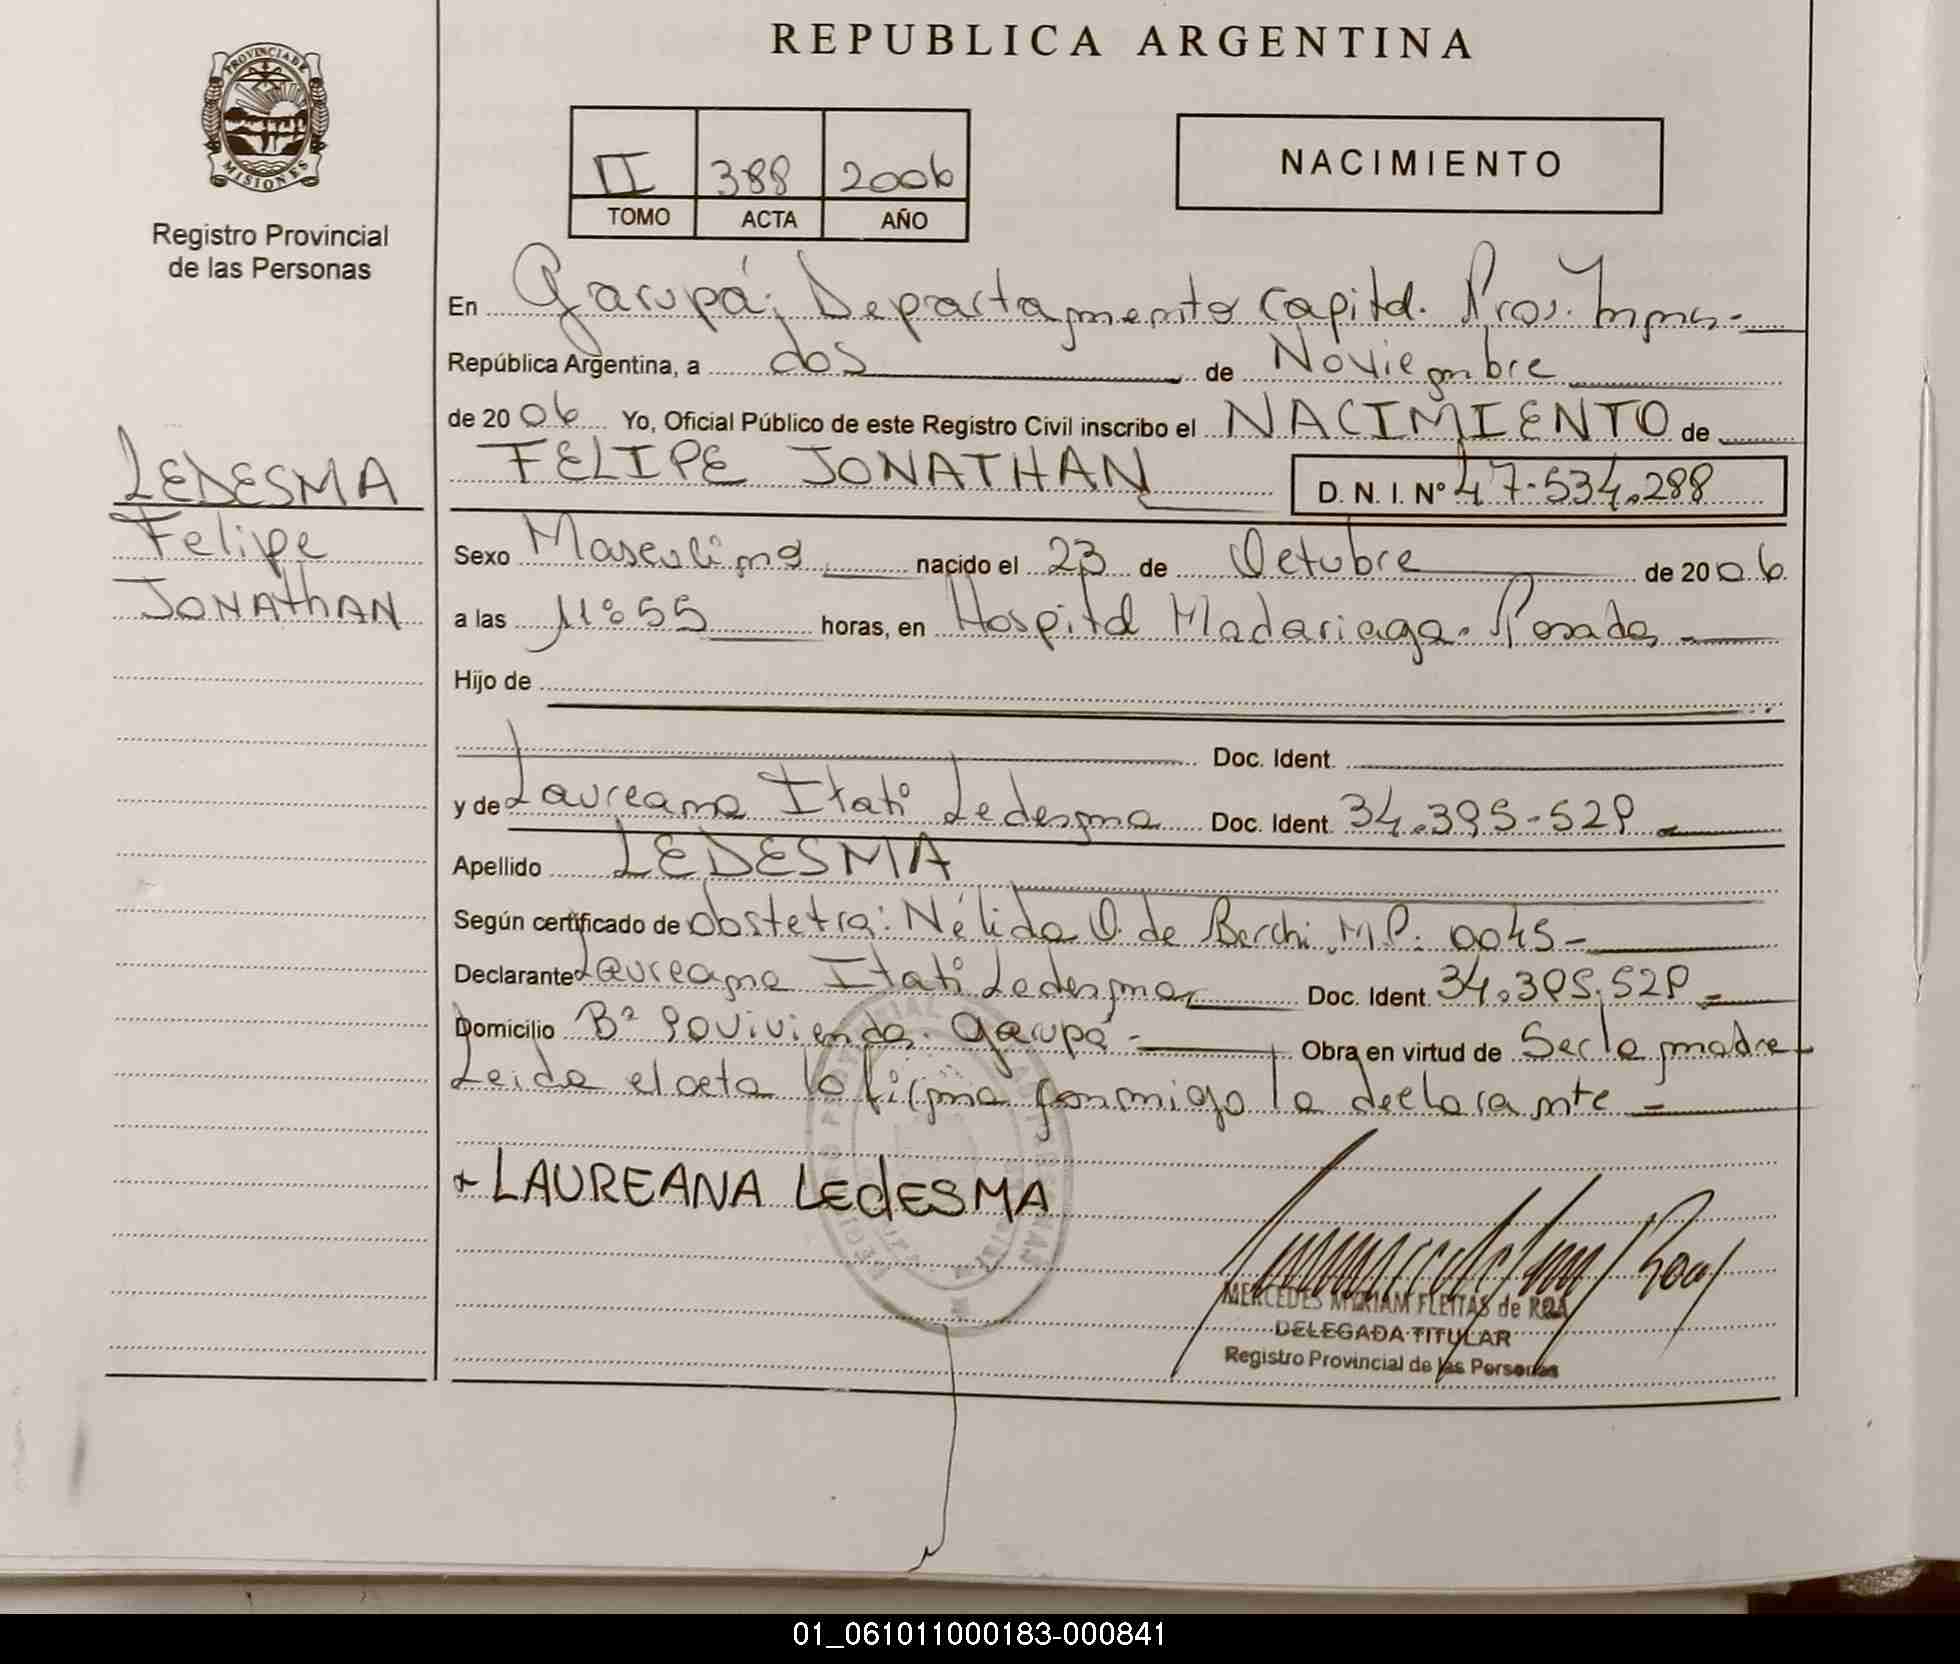 REPUBLICA ARGENTINA
PROVINCIA DE
MISIONES
Registro Provincial
de las Personas
II 388 2006
TOMO ACTA AÑO
NACIMIENTO
En Garupá; Departamento Capital. Prov. Mnes.-
República Argentina, a dos de Noviembre
de 2006 Yo, Oficial Público de este Registro Civil inscribo el NACIMIENTO de
FELIPE JONATHAN D. N. I. Nº 47.534.288
LEDESMA
Felipe
JONAthAN
Sexo Masculino nacido el 23 de Octubre de 2006.
a las 11:55 horas, en Hospital Madariaga. Posadas
Hijo de
Doc. Ident.
y de Laureana Itatí Ledesma Doc. Ident. 34.395.529
Apellido LEDESMA
Según certificado de obstetra: Nélida O. de Berchi. M.P.: 0045-
Declarante Laureana Itatí Ledesma Doc. Ident. 34.395.529
Domicilio Bº 90 viviendas. Garupá- Obra en virtud de Ser la madre
Leida el acta la firma conmigo la declarante
LAUREANA LEdESMA
MERCEDES MYRIAM FLEITAS de ROA
DELEGADA TITULAR
Registro Provincial de las Personas
01_061011000183-000841